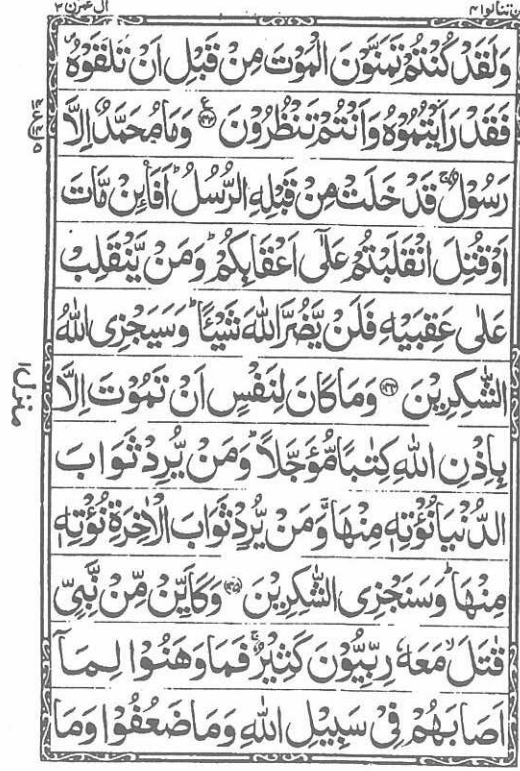 لن تنالوا ۴
ال عمرن ۳
وَلَقَدْ كُنْتُمْ تَمَنَّوْنَ الْمَوْتَ مِنْ قَبْلِ اَنْ تَلْقَوْهُ
فَقَدْ رَاَيْتُمُوْهُ وَاَنْتُمْ تَنْظُرُوْنَ ۝۱۴۳ وَمَا مُحَمَّدٌ اِلَّا
رَسُوْلٌ ۚ قَدْ خَلَتْ مِنْ قَبْلِهِ الرُّسُلُ ؕ اَفَا۟ئِنْ مَّاتَ
اَوْ قُتِلَ انْقَلَبْتُمْ عَلٰٓى اَعْقَابِكُمْ ؕ وَمَنْ يَّنْقَلِبْ
عَلٰى عَقِبَيْهِ فَلَنْ يَّضُرَّ اللّٰهَ شَيْـًٔا ؕ وَسَيَجْزِى اللّٰهُ
الشّٰكِرِيْنَ ۝۱۴۴ وَمَا كَانَ لِنَفْسٍ اَنْ تَمُوْتَ اِلَّا
بِاِذْنِ اللّٰهِ كِتٰبًا مُّؤَجَّلًا ؕ وَمَنْ يُّرِدْ ثَوَابَ
الدُّنْيَا نُؤْتِهٖ مِنْهَا ۚ وَمَنْ يُّرِدْ ثَوَابَ الْاٰخِرَةِ نُؤْتِهٖ
مِنْهَا ؕ وَسَنَجْزِى الشّٰكِرِيْنَ ۝۱۴۵ وَكَاَيِّنْ مِّنْ نَّبِيٍّ
قٰتَلَ ۙ مَعَهٗ رِبِّيُّوْنَ كَثِيْرٌ ۚ فَمَا وَهَنُوْا لِمَاۤ
اَصَابَهُمْ فِيْ سَبِيْلِ اللّٰهِ وَمَا ضَعُفُوْا وَمَا
منزل ۱